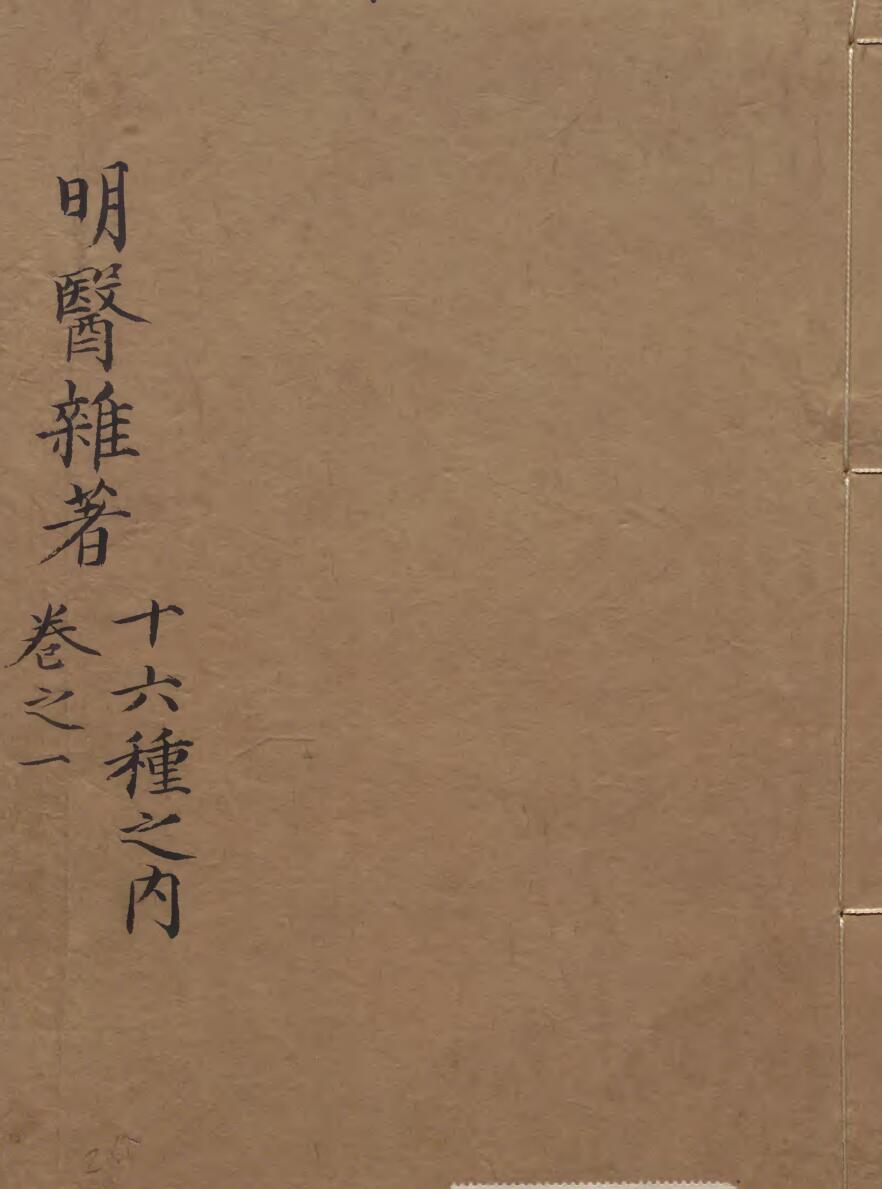 明醫雜著
十六種之内
卷之一